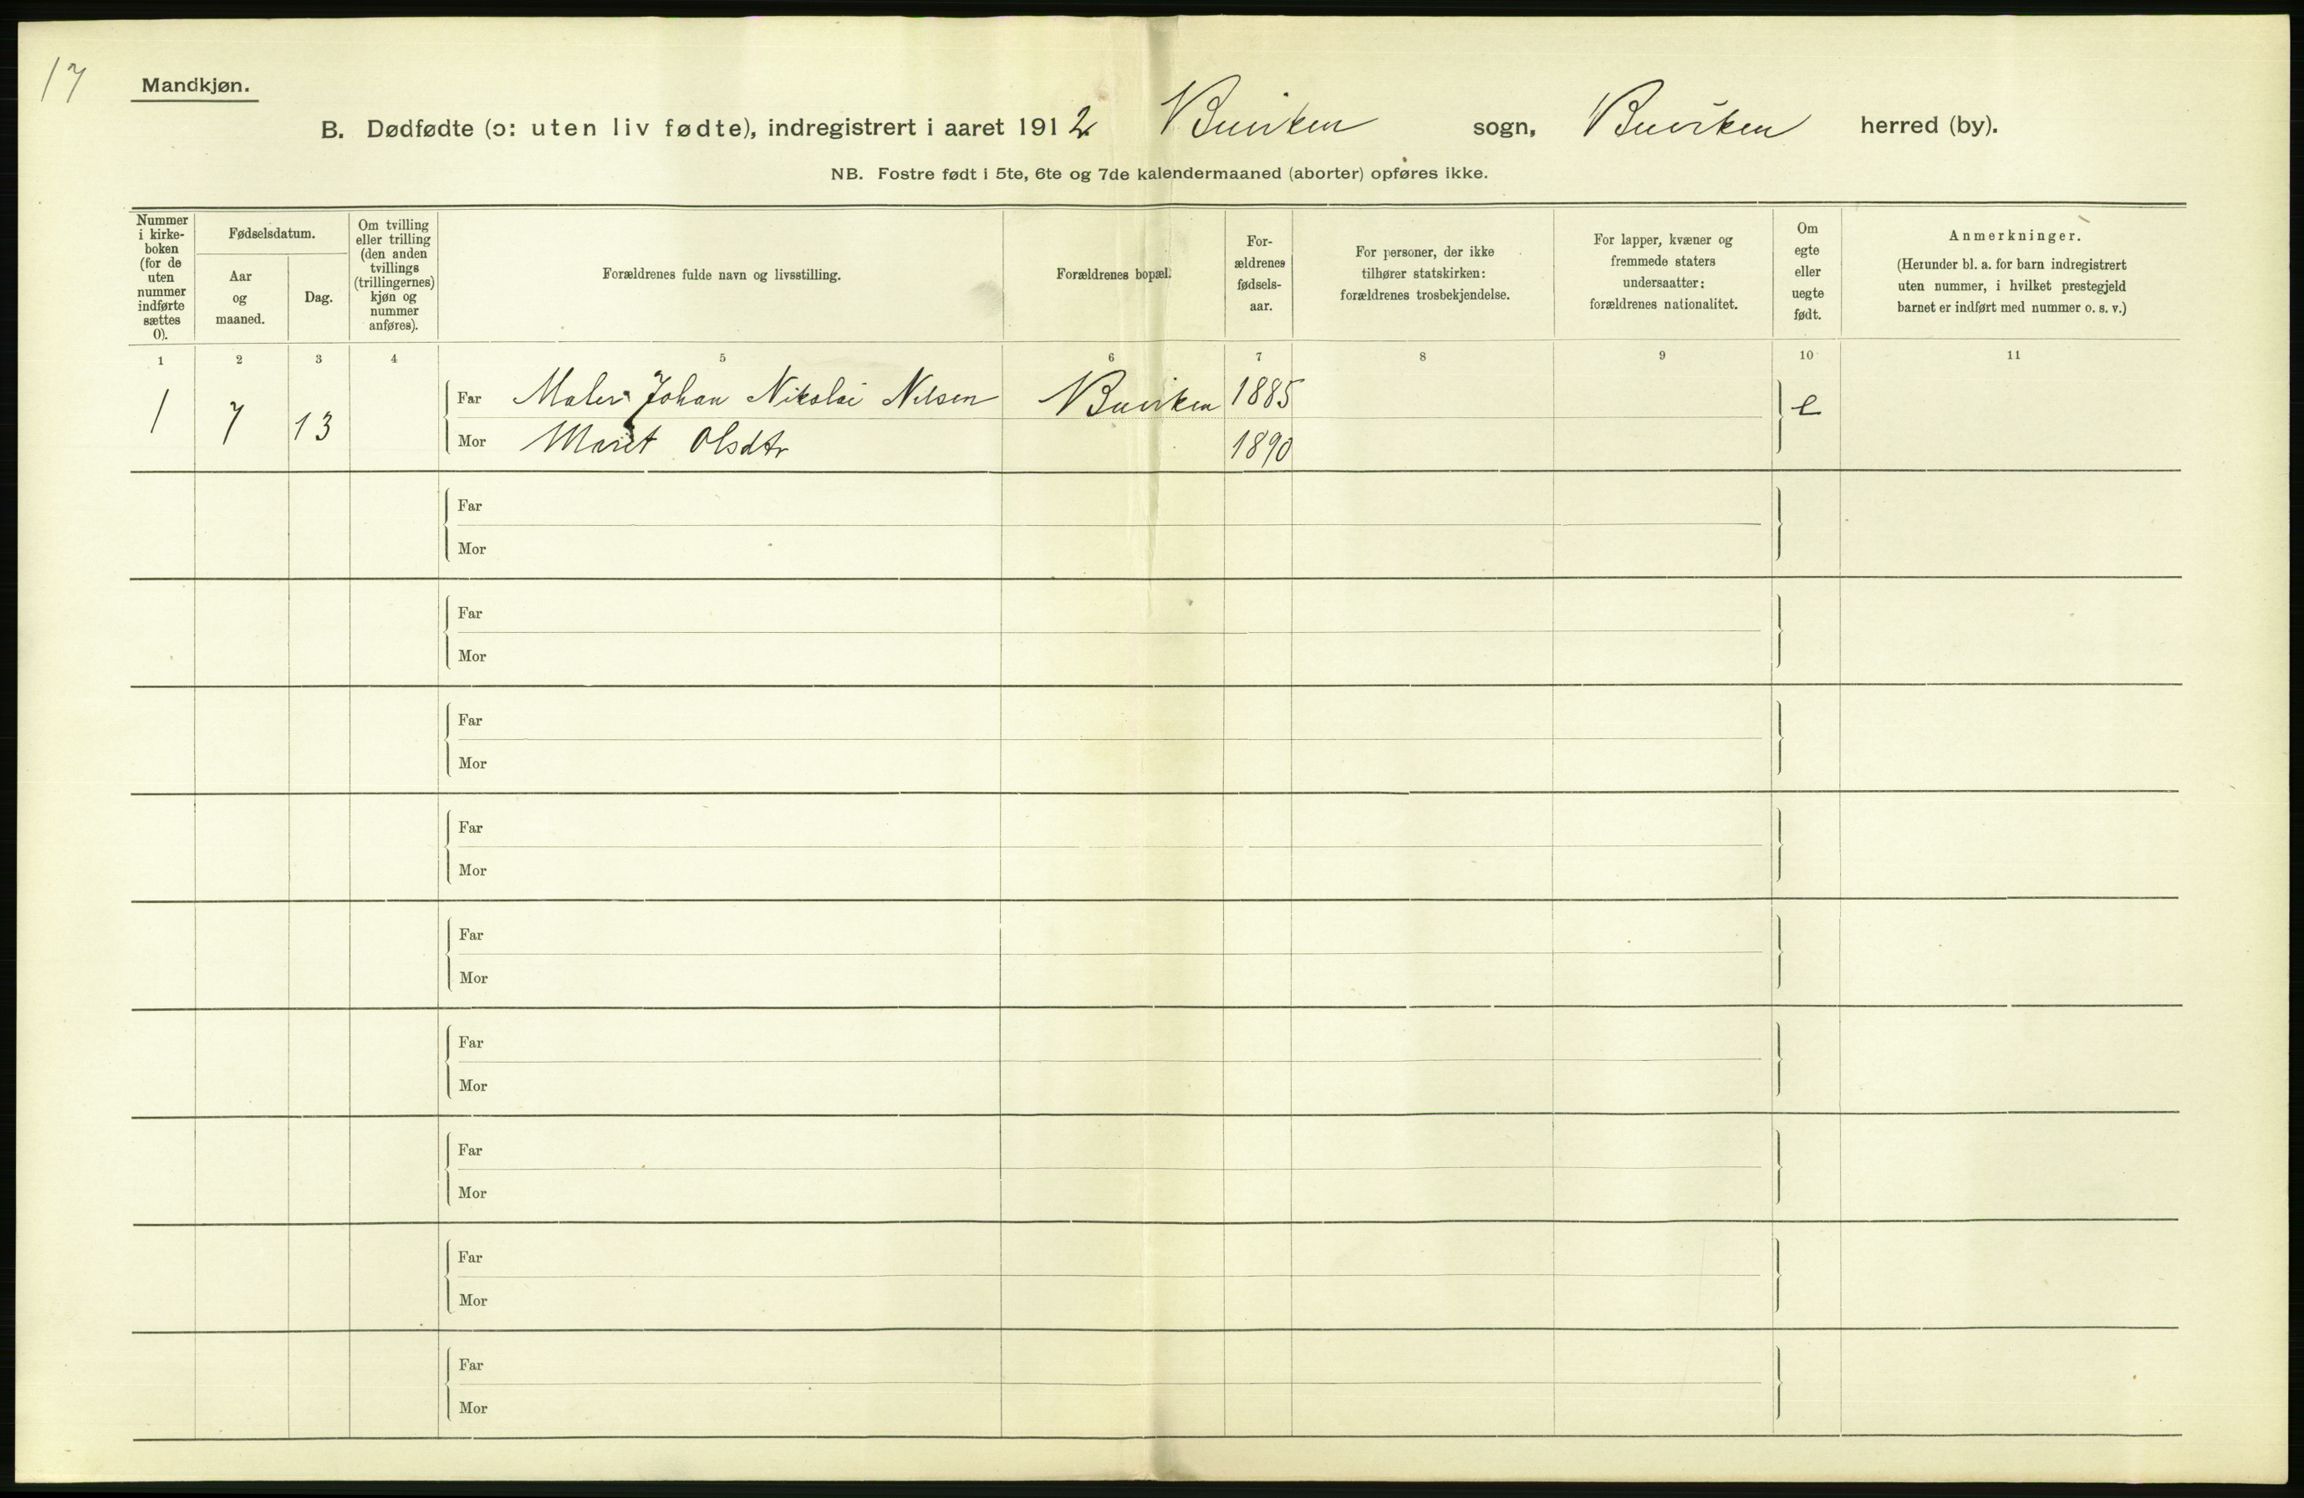 17
Mandkjøn.
B. Dødfødte (ɔ: uten liv fødte), indregistrert i aaret 1912 Buviken sogn, Buviken herred (by).
NB. Fostre født i 5te, 6te og 7de kalendermaaned (aborter) opføres ikke.
Nummer
i kirke-
boken
(for de
uten
nummer
indførte
sættes
0).
Fødselsdatum.
Aar
og
maaned.
Dag.
Om tvilling
eller trilling
(den anden
tvillings
(trillingernes)
kjøn og
nummer
anføres).
Forældrenes fulde navn og livsstilling.
Forældrenes bopæl.
For-
ældrenes
fødsels-
aar.
For personer, der ikke
tilhører statskirken:
forældrenes trosbekjendelse.
For lapper, kvæner og
fremmede staters
undersaatter:
forældrenes nationalitet.
Om
egte
eller
uegte
født.
Anmerkninger.
(Herunder bl. a. for barn indregistrert
uten nummer, i hvilket prestegjeld
barnet er indført med nummer o. s. v.)
1 2 3 4 5 6 7 8 9 10 11
1 7 13
Far Maler Johan Nikolai Nilsen Buviken 1885 e
Mor Marit Olsdtr 1890
Far
Mor
Far
Mor
Far
Mor
Far
Mor
Far
Mor
Far
Mor
Far
Mor
Far
Mor
Far
Mor